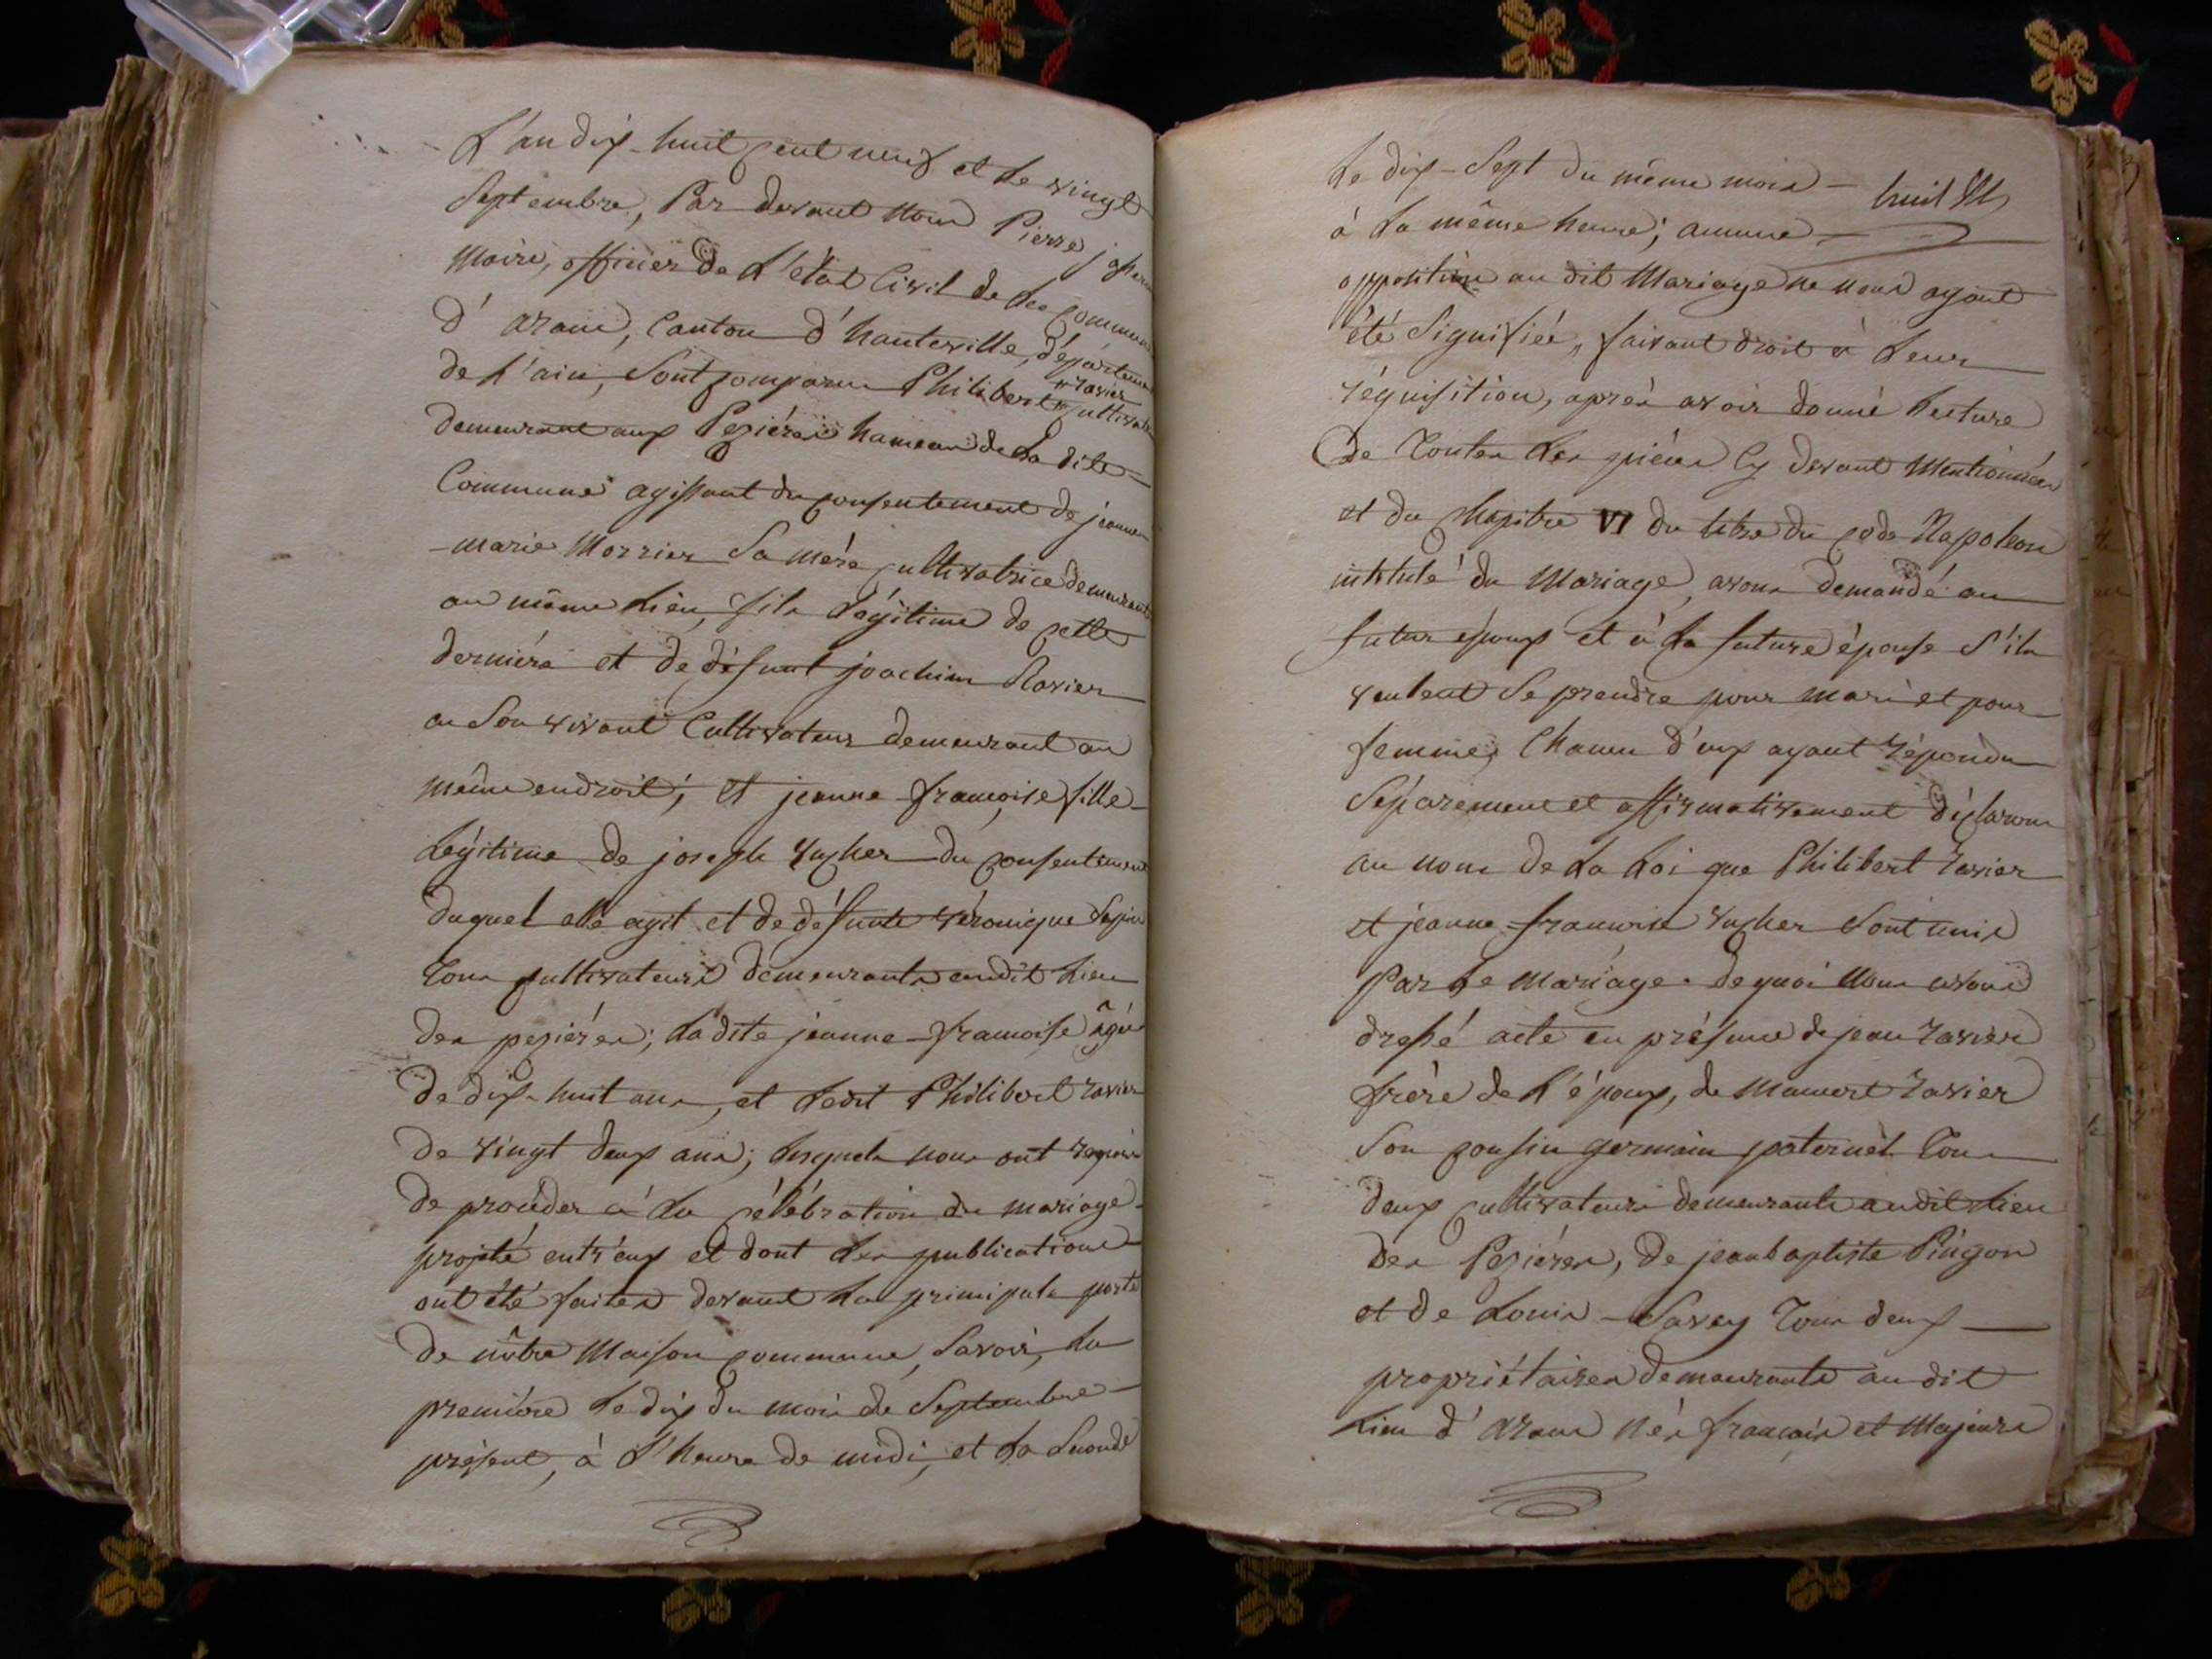 L'an dix-huit cent neuf et le vingt
Septembre, Par devant Nous Pierre
Maire, officier de L'état Civil de La commune
d'aranc, Canton d'hauteville, département
ravier
de L'ain, Sont comparus Philibert cultivateur
demeurant aux Pezières hameau de La dite
Commune agissant du consentement de jeanne
-marie Morrier Sa mère cultivatrice demeurant
au même Lieu, fils Légitime de cette
dernière et de défunt joachim Ravier
en Son vivant Cultivateur demeurant au
même endroit; et jeanne françoise fille
Légitime de joseph du consentement
duquel elle agit et de défunte véronique
Tous cultivateurs demeurants au dit Lieu
des pezières; La dite jeanne-françoise âgée
de dix-huit ans, et Ledit Philibert ravier
de vingt deux ans; Lesquels nous ont requis
de procéder à La célébration du mariage
projeté entr'eux et dont Les publications
ont été faites devant La principale porte
de nôtre Maison commune, Savoir, La
première Le dix du mois de Septembre
présent, à L'heure de midi, et La Seconde
Le dix-Sept du même mois -
à La même heure; aucune
opposition au dit Mariage ne nous ayant
été Signifiée, faisant droit à Leur
réquisition, après avoir donné Lecture
de Toutes Les pièces Cy devant Mentionnées
et du chapitre VI du titre du code Napoléon
intitulé du Mariage, avons demandé au
futur époux et à La future épouse S'ils
veulent Se prendre pour mari et pour
femme; Chacun d'eux ayant répondu
Séparement et affirmativement déclarons
au nom de La Loi que Philibert ravier
et jeanne-françoise Sont unis
Par Le mariage. de quoi Nous avons
dressé acte en présence de jean ravier
frère de L'époux, de Mamert ravier
Son cousin germain paternel Tous
deux cultivateurs demeurants audit Lieu
des Pezières, de jean baptiste Pingon
et de Louis Savey Tous deux
propriétaires demeurants au dit
Lieu d'aranc nés français et Majeurs